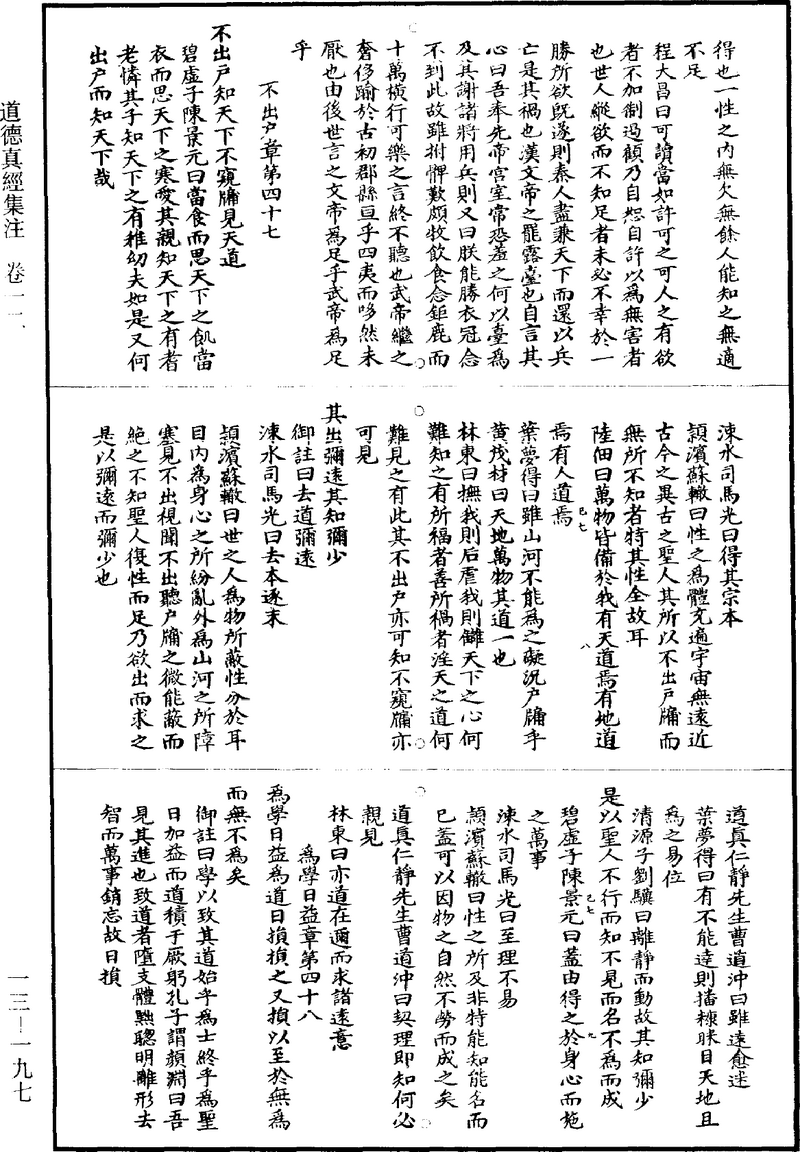 得也一性之內無欠無餘人能知之無適
不足
程大昌曰可讀當如許可之可人之有欲
者不加制遏顧乃自恕自許以為無害者
也世人縱欲而不知足者未必不幸於一
勝所欲旣遂則秦人盡兼天下而還以兵
亡是其禍也漢文帝之罷露臺也自言其
心曰吾奉先帝宮室常恐羞之何以臺為
及其謝諸將用兵則又曰朕能勝衣冠念
不到此故雖拊髀歎頗牧飲食念鉅鹿而
十萬橫行可樂之言終不聽也武帝繼之
奢侈踰於古初郡縣亘乎四夷而哆然未
厭也由後世言之文帝為足乎武帝為足
乎
不出戶章第四十七
不出戶知天下不窺牖見天道
碧虛子陳景元曰當食而思天下之飢當
衣而思天下之寒愛其親知天下之有耆
老憐其子知天下之有稚幼夫如是又何
出戶而知天下哉
涑水司馬光曰得其宗本
潁濱蘇轍曰性之為體充遍宇宙無遠近
古今之異古之聖人其所以不出戶牖而
無所不知者特其性全故耳
陸佃曰萬物皆備於我有天道焉有地道
焉有人道焉
葉夢得曰雖山河不能為之礙況戶牖乎
黃茂材曰天地萬物其道一也
林東曰撫我則后虐我則讎天下之心何
難知之有所福者善所禍者淫天之道何
難見之有此其不出戶亦可知不窺牖亦
可見
其出彌遠其知彌少
御註曰去道彌遠
涑水司馬光曰去本逐末
潁濱蘇轍曰世之人為物所蔽性分於耳
目內為身心之所紛亂外為山河之所障
塞見不出視聞不出聽戶牖之微能蔽而
絕之不知聖人復性而足乃欲出而求之
是以彌遠而彌少也
道真仁靜先生曹道沖曰雖遠愈迷
葉夢得曰有不能達則播糠眯目天地且
為之易位
清源子劉驥曰離靜而動故其知彌少
是以聖人不行而知不見而名不為而成
碧虛子陳景元曰蓋由得之於身心而施
之萬事
涑水司馬光曰至理不易
潁濱蘇轍曰性之所及非特能知能名而
已蓋可以因物之自然不勞而成之矣
道真仁靜先生曹道沖曰契理即知何必
親見
林東曰亦道在邇而求諸遠意
為學日益章第四十八
為學日益為道日損損之又損以至於無為
而無不為矣
御註曰學以致其道始乎為士終乎為聖
日加益而道積于厥躬孔子謂顏淵曰吾
見其進也致道者墮支體黜聰明離形去
智而萬事銷忘故日損
道德真經集注 卷一一
一三—一九七